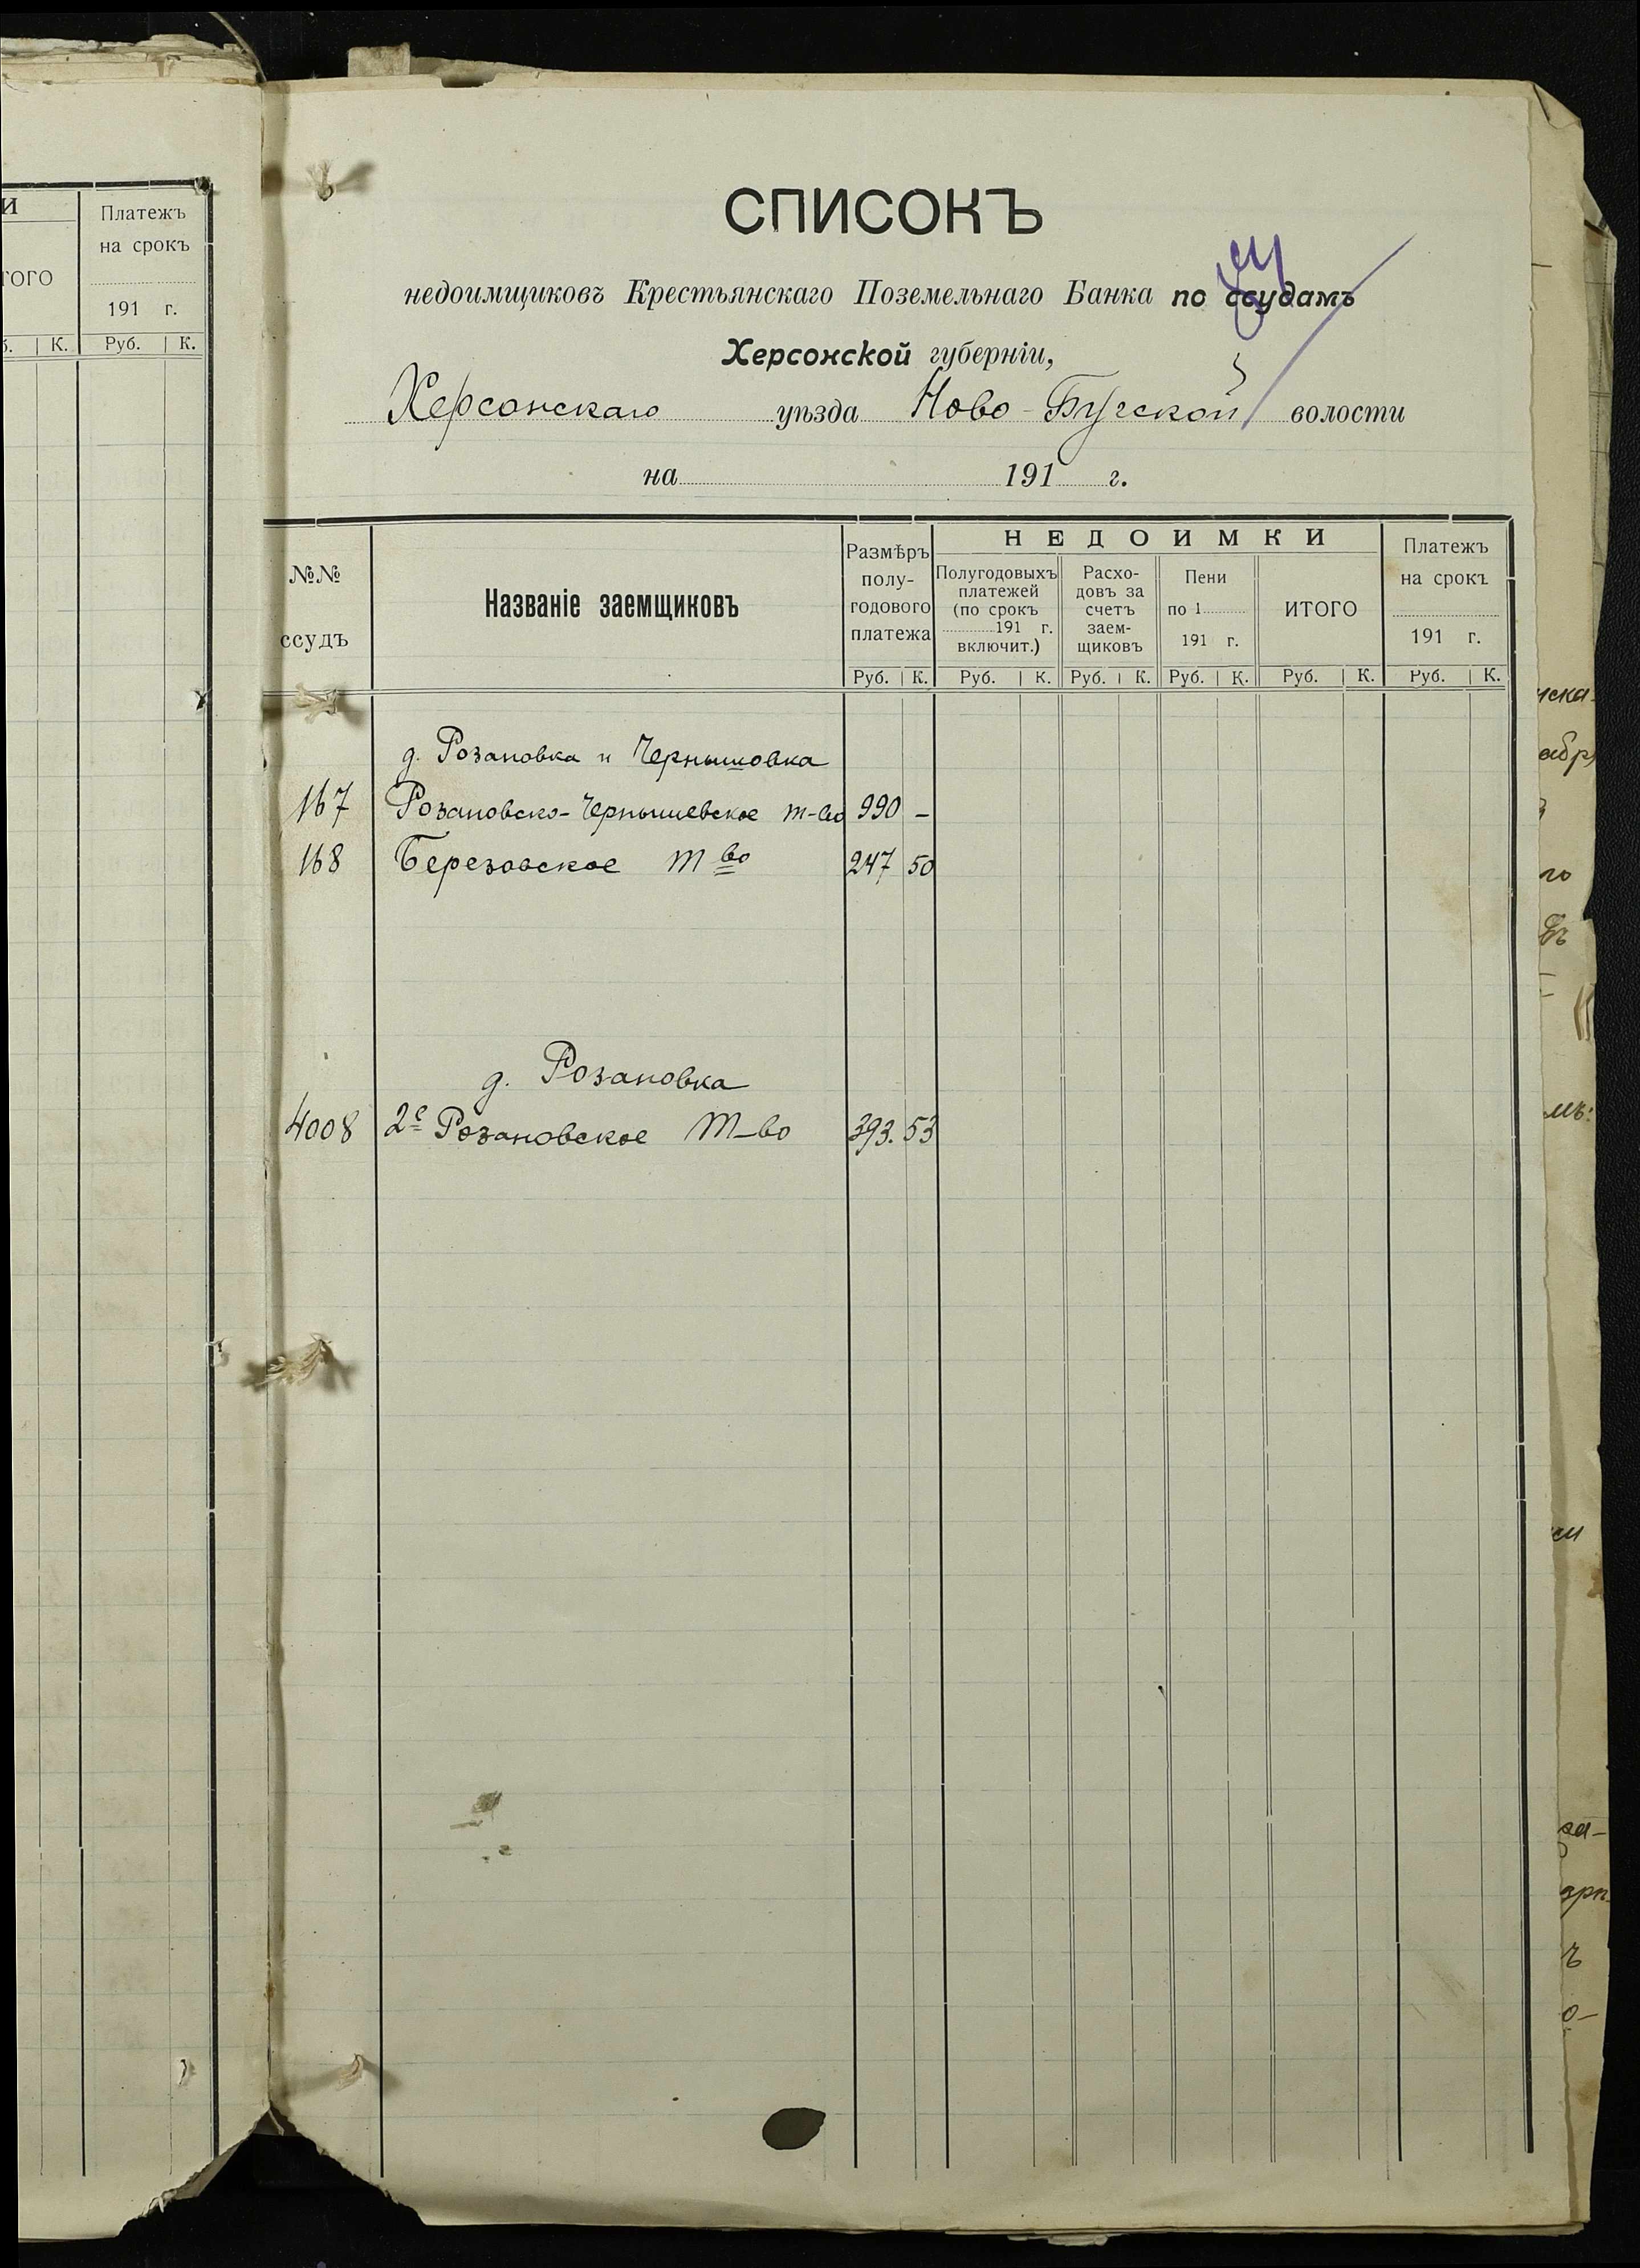 И
Платежъ
на срокъ
ТОГО
191 г.
К.
Руб. К.
СПИСОКЪ
недоимщиковъ Крестьянскаго Поземельнаго Банка по ссудамъ
Херсонской губерніи,
Херсонскаго уѣзда Ново-Бугской волости
на 191 г.
№№
ссудъ
Названіе заемщиковъ
Размѣръ
полу-
годового
платежа
НЕДОИМКИ
Полугодовыхъ
платежей
(по срокъ
191 г.
включит.)
Расхо-
довъ за
счетъ
заем-
щиковъ
Пени
по 1
191 г.
ИТОГО
Платежъ
на срокъ
191 г.
Руб. К. Руб. К. Руб. К. Руб. К. Руб. К. Руб. К.
д. Розановка и Чернышовка
167 Розановско-Чернышевское т-во 990 –
168 Березовское т во 247 50
д. Розановка
4008 2е Розановское Т-во 393. 53